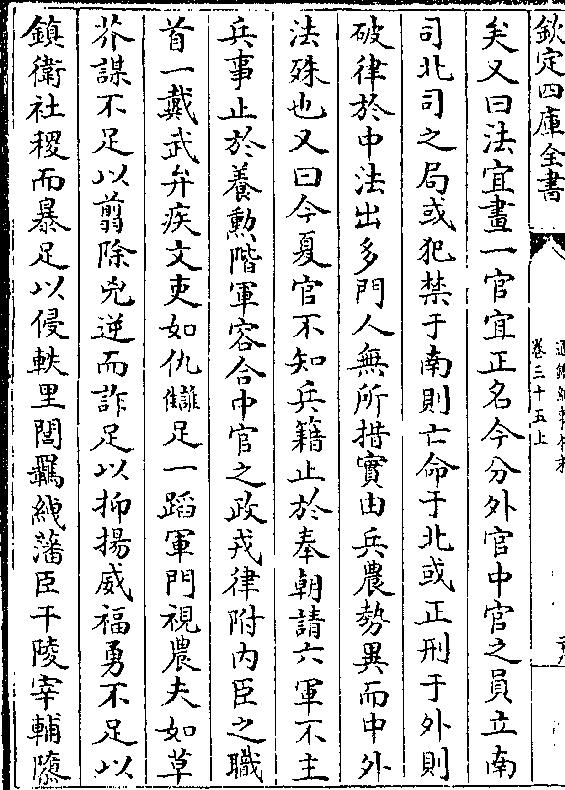 欽定四庫全書
卷三十五上
矣又曰法宜畫一官宜正名今分外官中官之員立南
司北司之局或犯禁于南則亡命于北或正刑于外則
破律於中法出多門人無所措實由兵農勢異而中外
法殊也又曰今夏官不知兵籍止於奉朝請六軍不主
兵事止於養勲階軍容合中官之政戎律附内臣之職
首一戴武弁疾文吏如仇讎足一蹈軍門視農夫如草
芥謀不足以翦除兇逆而詐足以抑揚威福勇不足以
鎮衛社稷而暴足以侵軼里閭羈絏藩臣干陵宰輔隳